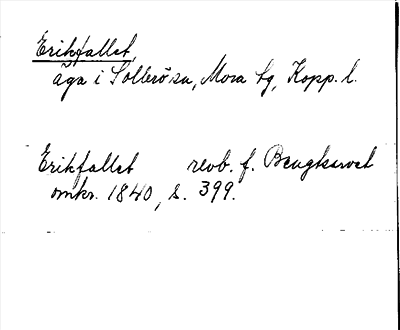 Erikfallet,
äga i Sollerö sn, Mora tg, Kopp. l.
Erikfallet revb. f. Bengtsarvet
omkr. 1840, s. 399.